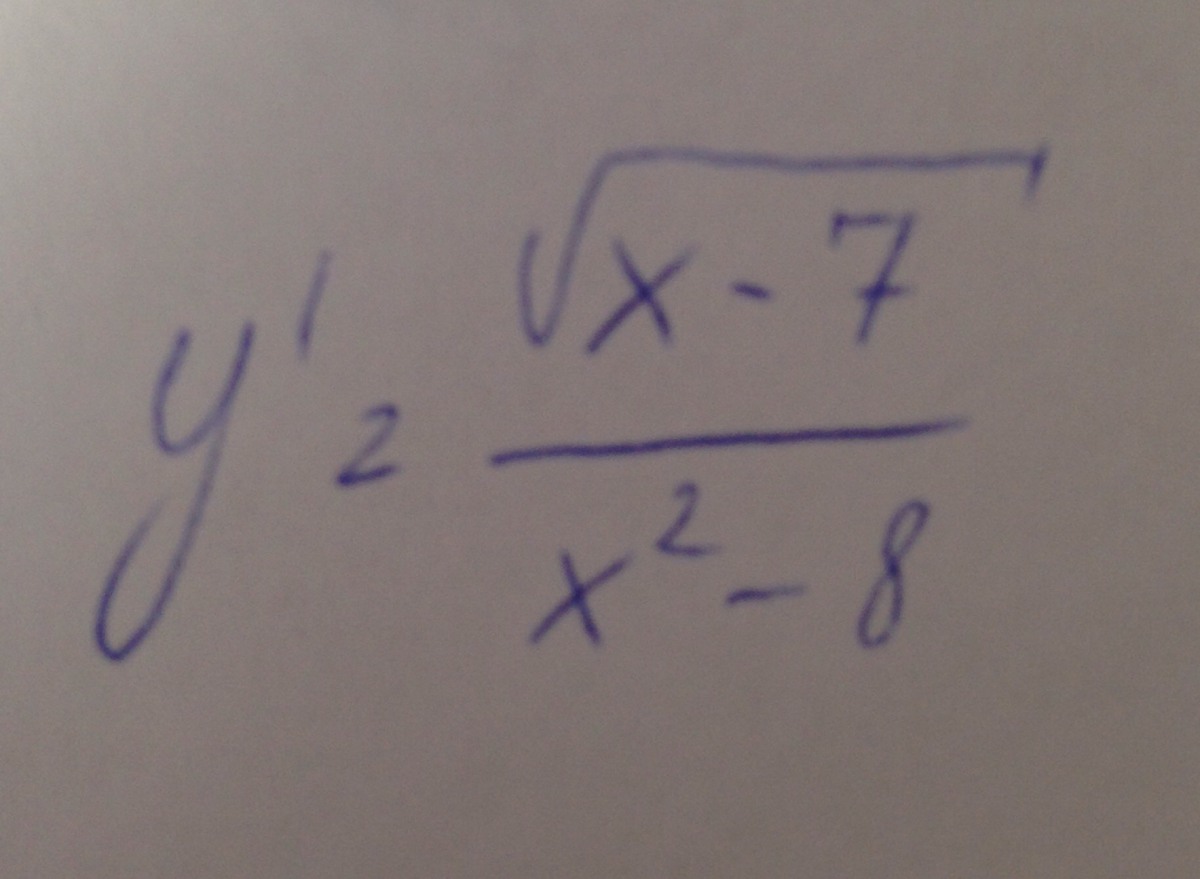 y' = √(x - 7) / (x² - 8)